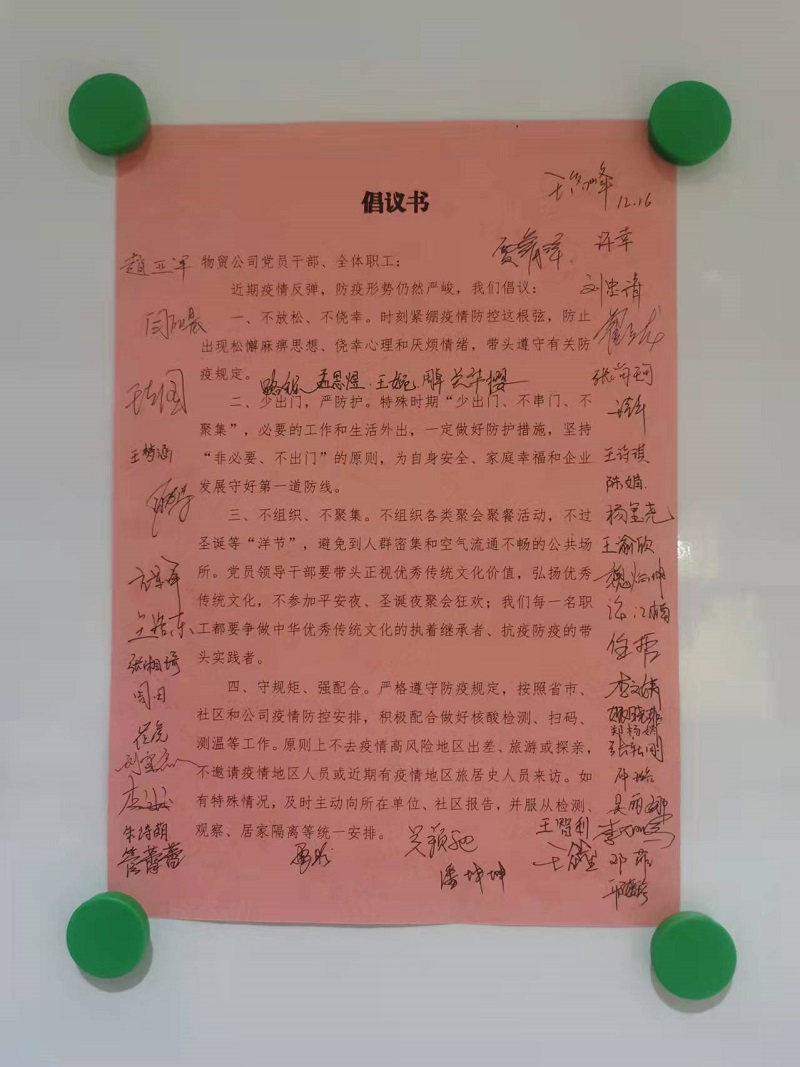 倡议书
12.16
物贸公司党员干部、全体职工：
近期疫情反弹，防疫形势仍然严峻，我们倡议：
一、不放松、不侥幸。时刻紧绷疫情防控这根弦，防止
出现松懈麻痹思想、侥幸心理和厌烦情绪，带头遵守有关防
疫规定。
二、少出门，严防护。特殊时期“少出门、不串门、不
聚集”，必要的工作和生活外出，一定做好防护措施，坚持
“非必要、不出门”的原则，为自身安全、家庭幸福和企业
发展守好第一道防线。
三、不组织、不聚集。不组织各类聚会聚餐活动，不过
圣诞等“洋节”，避免到人群密集和空气流通不畅的公共场
所。党员领导干部要带头正视优秀传统文化价值，弘扬优秀
传统文化，不参加平安夜、圣诞夜聚会狂欢；我们每一名职
工都要争做中华优秀传统文化的执着继承者、抗疫防疫的带
头实践者。
四、守规矩、强配合。严格遵守防疫规定，按照省市、
社区和公司疫情防控安排，积极配合做好核酸检测、扫码、
测温等工作。原则上不去疫情高风险地区出差、旅游或探亲，
不邀请疫情地区人员或近期有疫情地区旅居史人员来访。如
有特殊情况，及时主动向所在单位、社区报告，并服从检测、
观察、居家隔离等统一安排。
赵亚军
王梦涵
张湘琦
周田
崔虎
朱诗萌
管蕾蕾
潘坤坤
王智利
许幸
刘忠靖
王诗琪
陈娟
王渝欣
任哲
李文婧
郑杨婷
吴丽娜
邓菲